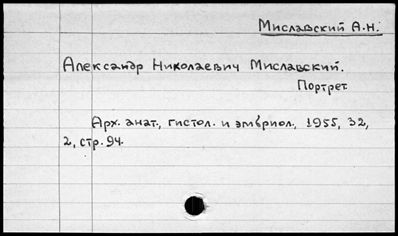 Миславский А.Н.
Александр Николаевич Миславский.
Портрет.
Арх. анат., гистол. и эмбриол., 1955, 32,
2, стр. 94.